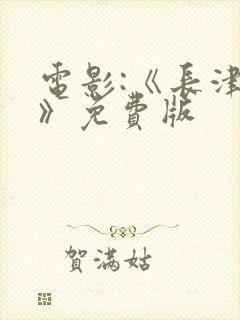 電影:《長津
》免費版
賀滿姑